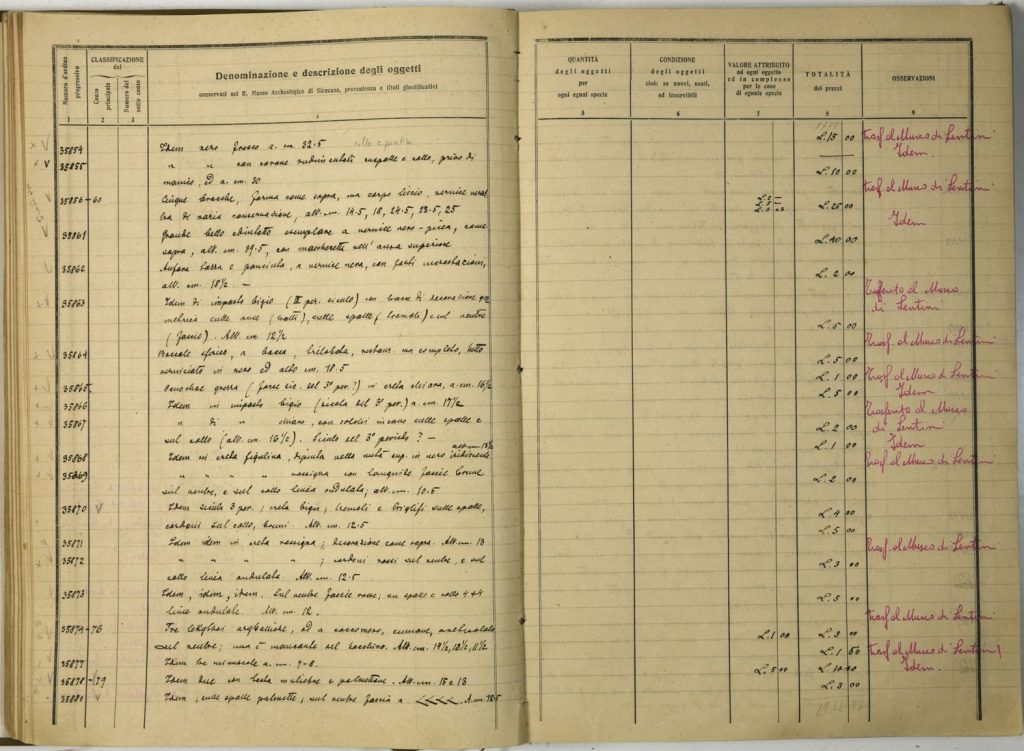 Numero d'ordine progressivo
CLASSIFICAZIONE
del
Conto principale
Numero del sotto conto
Denominazione e descrizione degli oggetti
conservati nel R. Museo Archeologico di Siracusa, provenienza e titoli giustificativi
QUANTITÀ
degli oggetti
per
ogni egual specie
CONDIZIONE
degli oggetti
cioè: se nuovi, usati,
od inservibili
VALORE ATTRIBUITO
ad ogni oggetto
ed in complesso
per le cose
di eguale specie
TOTALITÀ
dei prezzi
OSSERVAZIONI
1 2 3 4 5 6 7 8 9
35854 Idem nero fosco a. cm. 32.5 L. 15 00 trasf. al Museo di Lentini
35855 " " con corone rudimentali in spalle e collo, privo di Idem.
manico, ed a. cm. 30 L. 10 00
35856-60 Cinque brocche, forma come sopra, ma corpo liscio, vernice nera trasf. al Museo di Lentini
di varia conservazione, alt. cm. 14.5, 18, 24.5, 23.5, 25 L. 25 00
35861 Grande bello esemplare a vernice nero-picea, come Idem
sopra, alt. cm. 39.5, con mascherette nell'ansa superiore L. 40 00
35862 Anfora bassa e panciuta, a vernice nera, con forti incrostazioni,
alt. cm. 18½. — L. 2 00
35863 Idem di impasto bigio (II per. siculo) con tracce di decorazione geo Trasferito al Museo
metrica sulle anse (tratti), sulle spalle (tremoli) e sul ventre di Lentini
(fascie). Alt. cm. 12½ L. 5 00
35864 Boccale sferico, a bocca trilobata, restaur. ma completo, tutto Trasf. al Museo di Lentini
verniciato in nero ed alto cm. 18.5 L. 5 00
35865 Oenochoe grezza (forse sic. del 3° per.?) in creta chiara, a. cm. 16½ L. 1 00 Trasf. al Museo di Lentini
35866 Idem in impasto bigio (sicula del 3° per.) a. cm. 17½ L. 5 00 Idem
35867 " di " chiaro, con cordoni sulle spalle e Trasferito al Museo
sul collo (alt. cm. 16½). Siculo del 3° periodo? — L. 2 00 di Lentini
35868 Idem in creta figulina, dipinta nella metà sup. in nero iridiscente L. 1 00 Idem
35869 " " " " rossigna con fascie brune Trasf. al Museo di Lentini
sul ventre, e sul collo linea ondulata; alt. cm. 10.5 L. 2 00
35870 V Idem sicula 3 per.; creta bigia; tremoli e triglifi sulle spalle,
cordoni sul collo, bruni. Alt. cm. 12.5 L. 4 00
35871 Idem idem in creta rossigna; decorazione come sopra. Alt. cm. 13 L. 5 00 Trasf. al Museo di Lentini
35872 " " " " ; cordoni rossi sul ventre, e sul
collo linea ondulata. Alt. cm. 12.5 L. 3 00
35873 Idem, idem, idem. Sul ventre fascie rosse; su spalle e collo 4+4
linee ondulate. Alt. cm. 12. L. 3 00
35874-76 Tre lekythoi ariballiche, ad a cocomero, comune, Trasf. al Museo di Lentini
sul ventre; una è mancante del bocchino. Alt. cm. 14½, 12½, 11½ L. 1 00 L. 3 00
35877 Idem tre minuscole a. cm. 7-8. L. 1 50 trasf. al Museo di Lentini
35878-79 Idem due con testa muliebre e palmettone. Alt. cm. 15 e 13 L. 5 00 L. 10 00 Idem.
35880 V Idem, sulle spalle palmette; sul ventre fascia a <<<<. A. cm. 12.5 L. 3 00